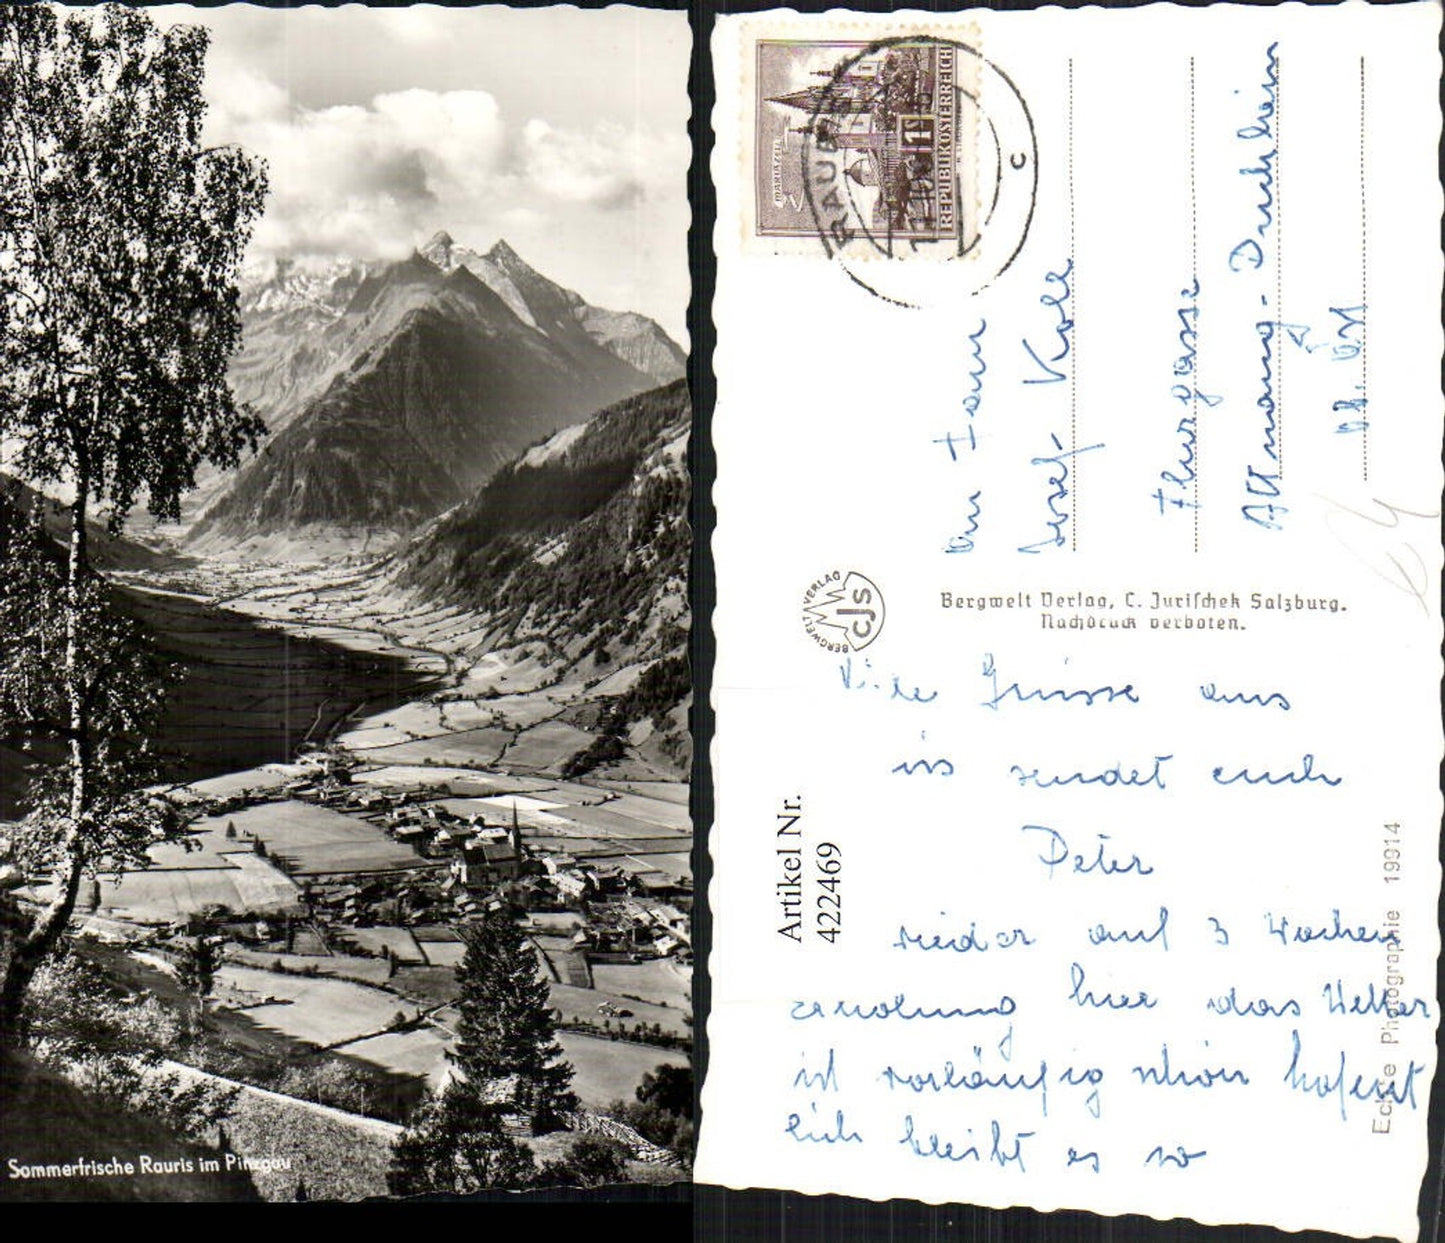 Sommerfrische Rauris im Pinzgau
MARIAZELL
1
REPUBLIK ÖSTERREICH
RAURIS
c
An Fam
Josef Kolb
Flurgasse
Attnang-Puchheim
Ob. Öst
BERGWELT VERLAG
CJS
Bergwelt Verlag, C. Jurischek Salzburg.
Nachdruck verboten.
Viele Grüsse aus
sendet euch
Peter
wieder auf 3 Wochen
hier das Wetter
ist vorläufig schön hofent
lich bleibt es so
Artikel Nr.
422469
Echte Photographie 19914